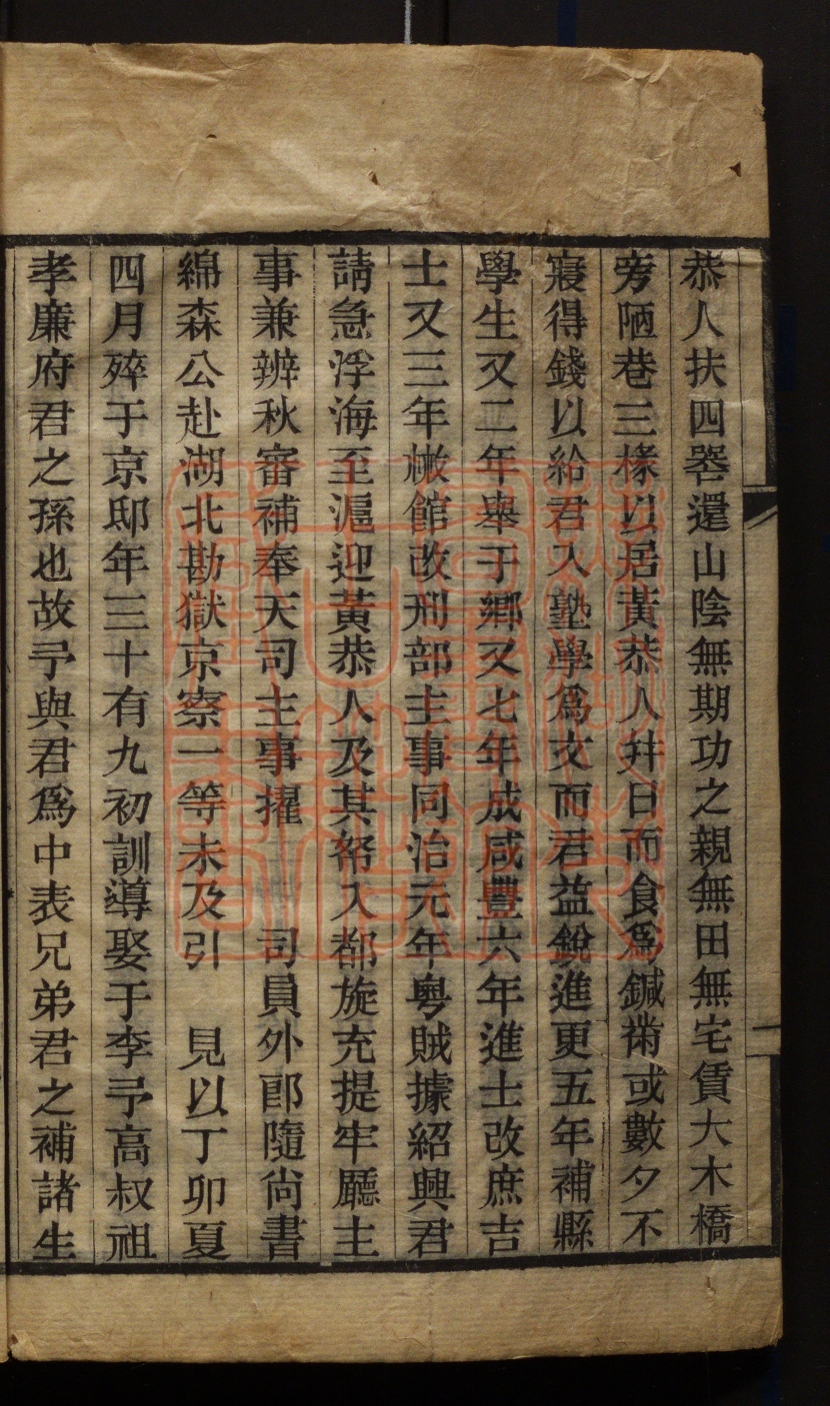 恭人扶四喪還山陰無期功之親無田無宅賃大木橋
旁陋巷三椽以居黃恭人幷日而食爲鍼黹或數夕不
寢得錢以給君入塾學爲文而君益銳進更五年補縣
學生又二年舉于鄉又七年成咸豐六年進士改庶吉
士又三年散館改刑部主事同治元年粵賊據紹興君
請急浮海至滬迎黃恭人及其帑入都旋充提牢廳主
事兼辦秋審補奉天司主事擢　　司員外郎隨尙書
綿森公赴湖北勘獄京察一等未及引　見以丁卯夏
四月殚于京邸年三十有九初訓導娶于李予高叔祖
孝廉府君之孫也故予與君爲中表兄弟君之補諸生